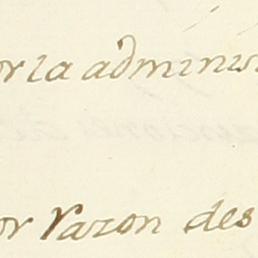 or la adminis
or razon des